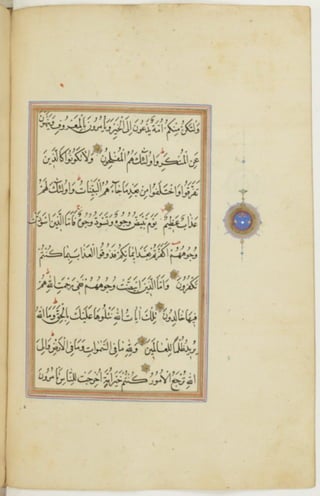 وَلْتَكُن مِنكُمْ أُمَّةٌ يَدْعُونَ إِلَى الْخَيْرِ وَيَأْمُرُونَ بِالْمَعْرُوفِ وَيَنْهَوْنَ
عَنِ الْمُنْكَرِ وَأُولَئِكَ هُمُ الْمُفْلِحُونَ وَلَا تَكُونُوا كَالَّذِينَ
تَفَرَّقُوا وَاخْتَلَفُوا مِنْ بَعْدِ مَا جَاءَهُمُ الْبَيِّنَاتُ وَأُولَئِكَ لَهُمْ
عَذَابٌ عَظِيمٌ يَوْمَ تَبْيَضُّ وُجُوهٌ وَتَسْوَدُّ وُجُوهٌ فَأَمَّا الَّذِينَ اسْوَدَّتْ
وُجُوهُهُمْ أَكَفَرْتُمْ بَعْدَ إِيمَانِكُمْ فَذُوقُوا الْعَذَابَ بِمَا كُنْتُمْ
تَكْفُرُونَ وَأَمَّا الَّذِينَ ابْيَضَّتْ وُجُوهُهُمْ فَفِي رَحْمَةِ اللَّهِ هُمْ
فِيهَا خَالِدُونَ تِلْكَ آيَاتُ اللَّهِ نَتْلُوهَا عَلَيْكَ بِالْحَقِّ وَمَا اللَّهُ
يُرِيدُ ظُلْمًا لِلْعَالَمِينَ وَلِلَّهِ مَا فِي السَّمَوَاتِ وَمَا فِي الْأَرْضِ وَإِلَى
اللَّهِ تُرْجَعُ الْأُمُورُ كُنْتُمْ خَيْرَ أُمَّةٍ أُخْرِجَتْ لِلنَّاسِ تَأْمُرُونَ